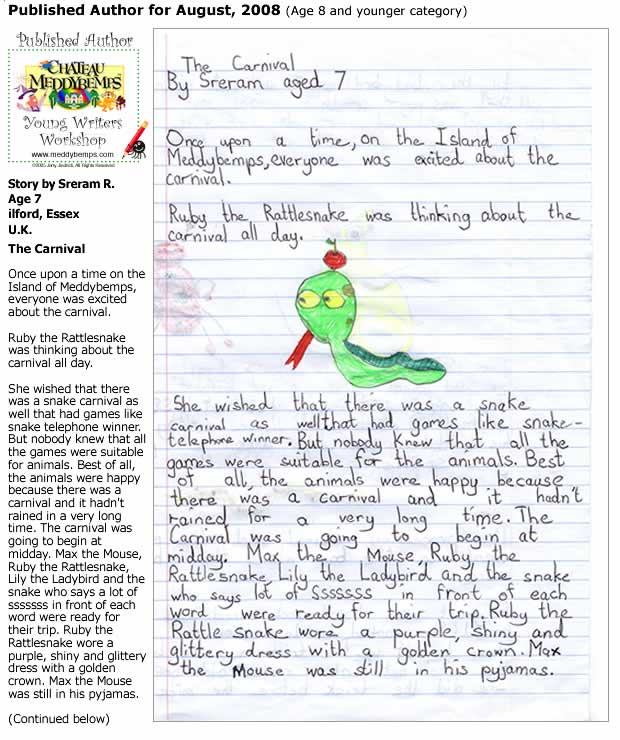 Published Author for August, 2008 (Age 8 and younger category)
Published Author
CHATEAU
MEDDYBEMPS
Young Writers
Workshop
www.meddybemps.com
Story by Sreram R.
Age 7
ilford, Essex
U.K.
The Carnival
Once upon a time on the
Island of Meddybemps,
everyone was excited
about the carnival.
Ruby the Rattlesnake
was thinking about the
carnival all day.
She wished that there
was a snake carnival as
well that had games like
snake telephone winner.
But nobody knew that all
the games were suitable
for animals. Best of all,
the animals were happy
because there was a
carnival and it hadn't
rained in a very long
time. The carnival was
going to begin at
midday. Max the Mouse,
Ruby the Rattlesnake,
Lily the Ladybird and the
snake who says a lot of
sssssss in front of each
word were ready for
their trip. Ruby the
Rattlesnake wore a
purple, shiny and glittery
dress with a golden
crown. Max the Mouse
was still in his pyjamas.
(Continued below)
The Carnival
By Sreram aged 7
Once upon a time, on the Island of
Meddybemps, everyone was exited about the
carnival.
Ruby the Rattlesnake was thinking about the
carnival all day.
She wished that there was a snake
carnival as well that had games like snake-
telephone winner. But nobody knew that all the
games were suitable for the animals. Best
of all, the animals were happy because
there was a carnival and it hadn't
rained for a very long time. The
Carnival was going to begin at
midday. Max the Mouse, Ruby the
Rattlesnake, Lily the Ladybird and the snake
who says lot of SSSSSSS in front of each
word were ready for their trip. Ruby the
Rattle snake wore a purple, shiny and
glittery dress with a golden crown. Max
the Mouse was still in his pyjamas.